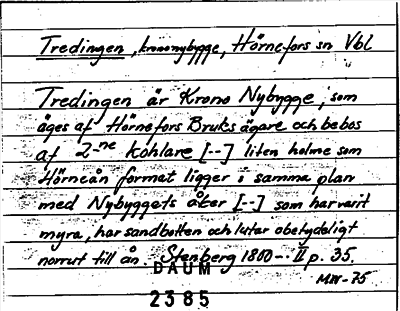 Tredingen, krononybygge, Hörnefors sn Vbl
Tredingen är Krono Nybygge, som
äges af Hörnefors Bruks ägare och bebos
af 2-ne kohlare [--] liten holme som
Hörneån format ligger i samma plan
med Nybyggets åker [--] som har varit
myra, har sandbotten och lutar obetydeligt
norrut till ån. Stenberg 1800-. II p. 35.
MW-75
DAUM
2385